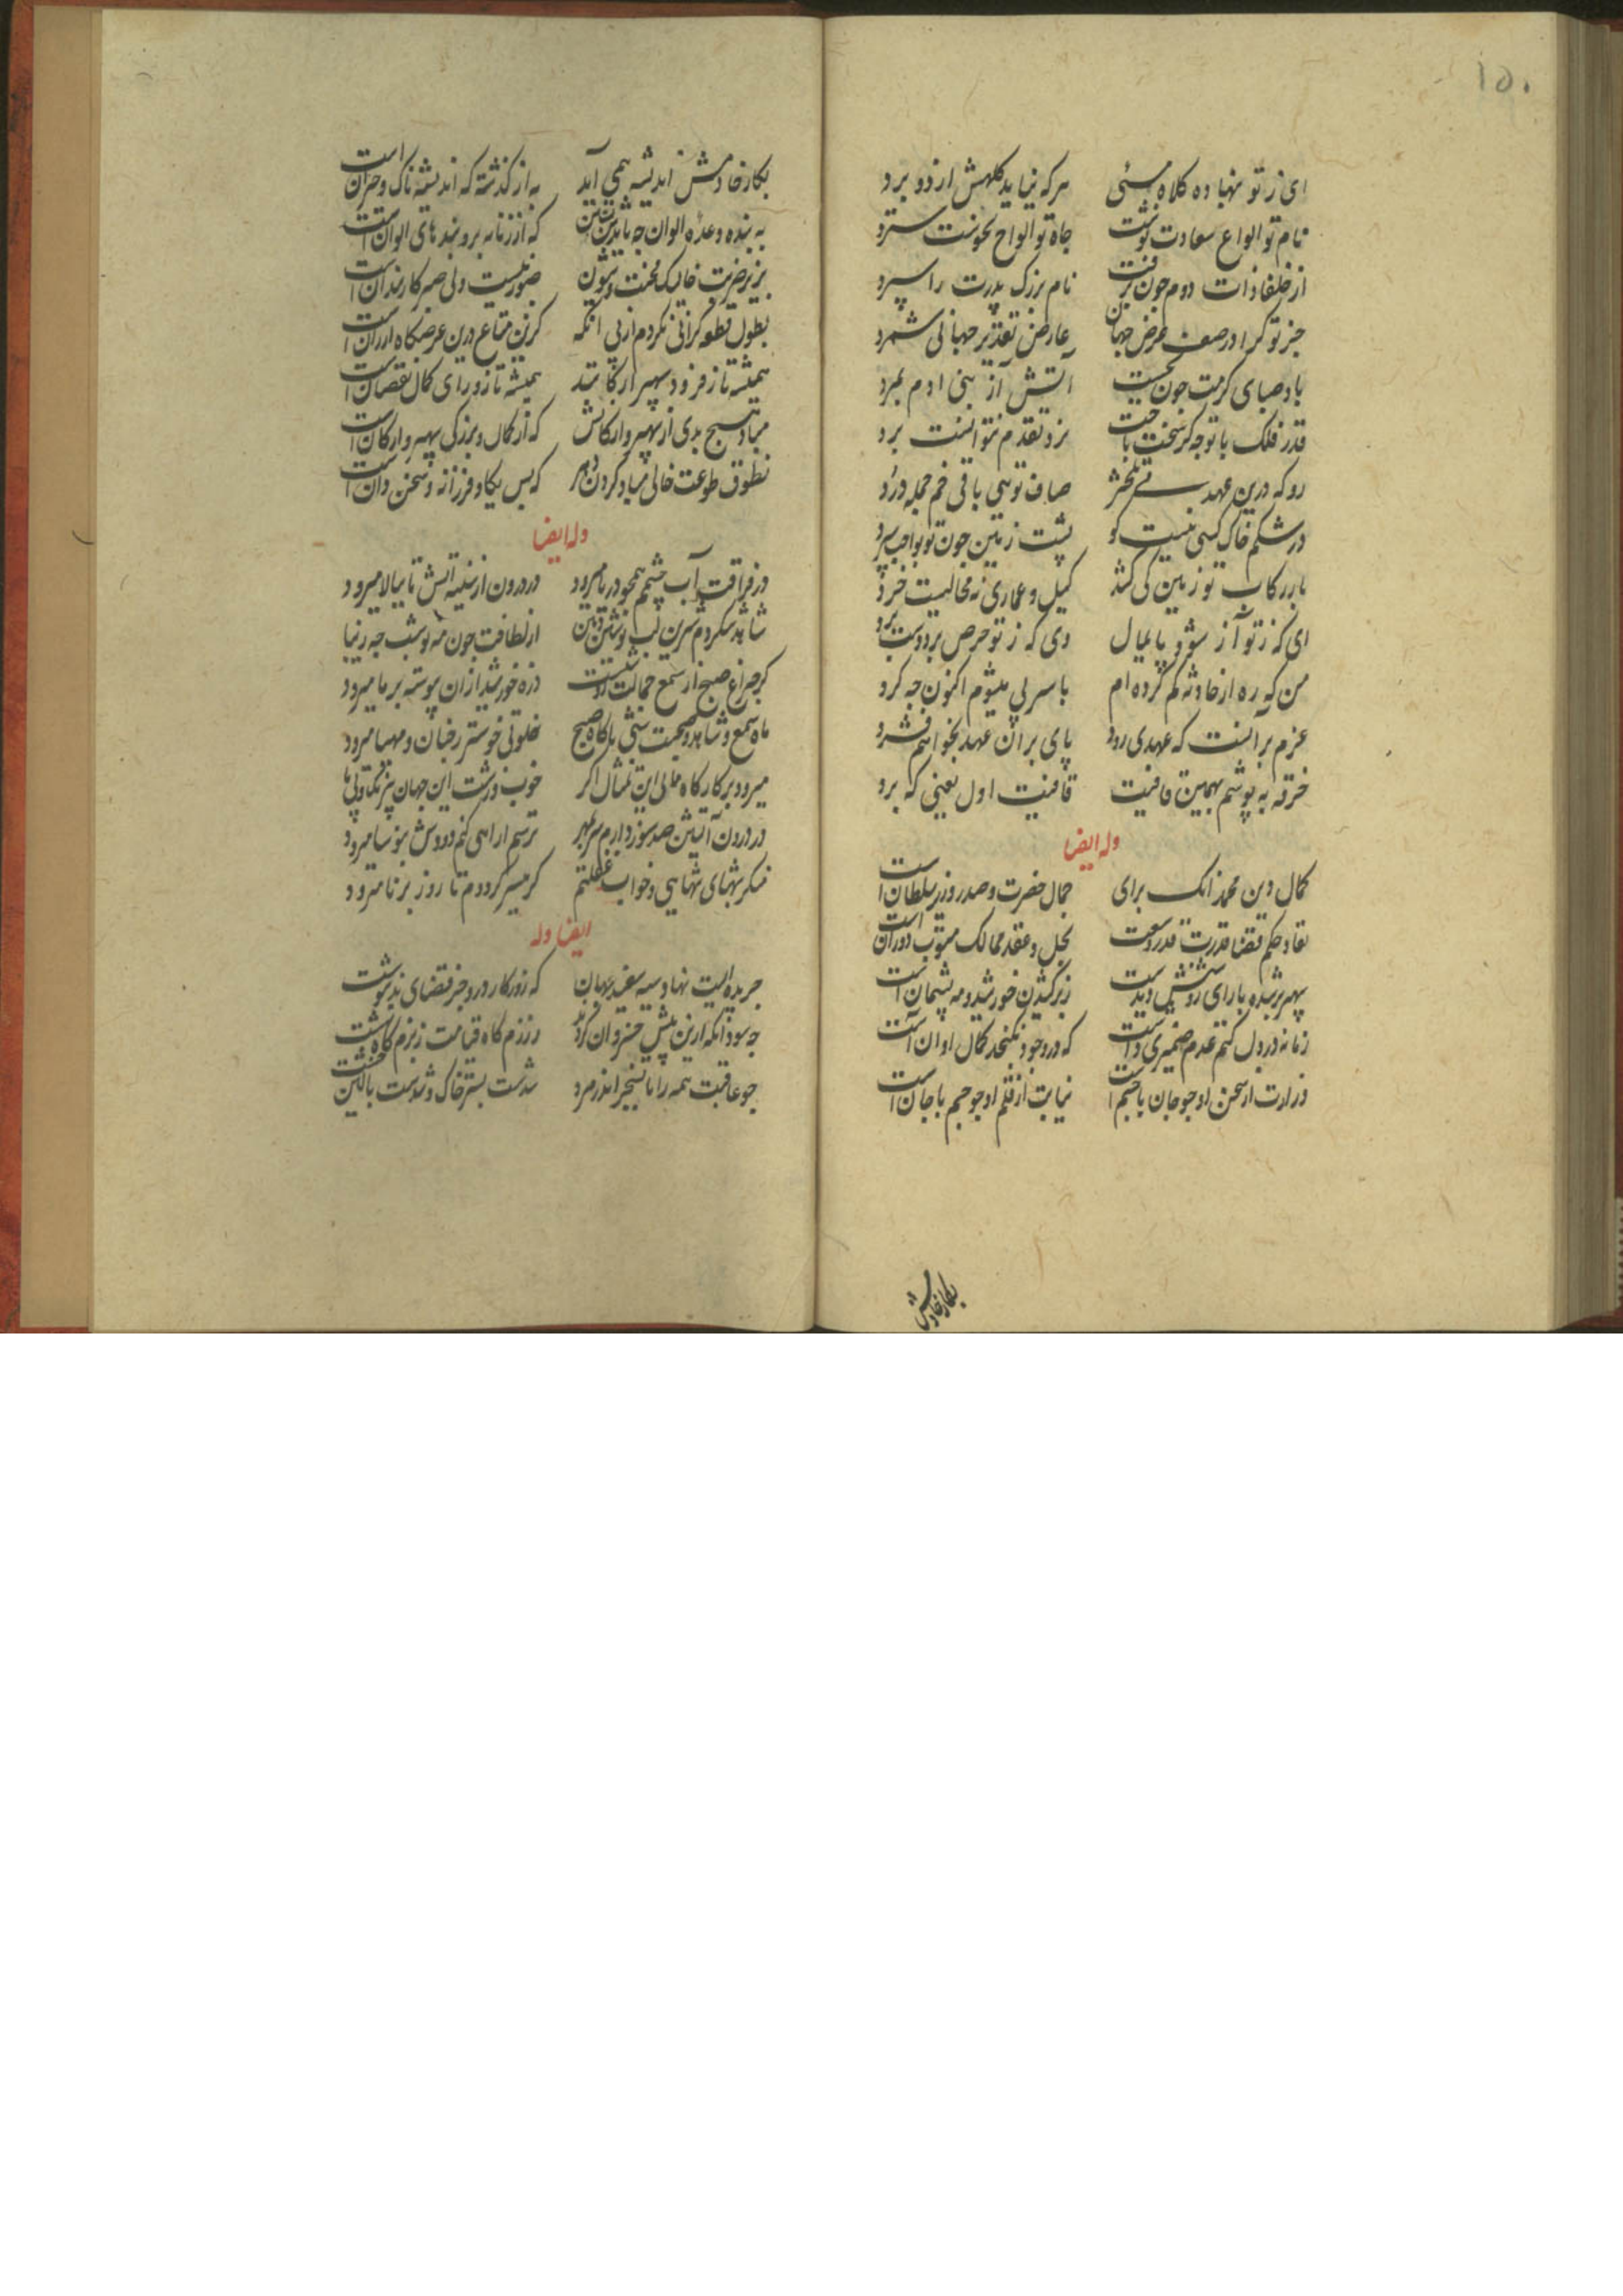 ۱۵۰
ای ز تو بنهاده کلاه مسنی هر که نیاید کلهش از دو برد
نام تو انواع سعادت نوشت جاه تو الواح نحوست سترد
از خلفا ذات دوم چون برفت نام بزرگ پدرت را سپرد
جز تو کرا در صف عرض جهان عارض تقدیر جهانی شمرد
باد صبای کرمت چون بجست آتش آز بنی ادم بمرد
قدر فلک با تو جه کر سخت باخت نرد تقدم نتوانست برد
رو که درین عهد صاف تویی باقی خم جمله درد
در شکم خاک کسی نیست کو پشت زمین چون تو بواجب سپرد
بار رکاب تو زمین کی کشد کیل و عماری نه محالیست خرد
ای که ز تو آز شود پایمال وی که ز تو حرص بردوست برد
من که ره از حادثه کم کرده ام با سر پی میشوم اکنون جه کرد
عزم بر آنست که عهدی رود پای بر ان عهد بخواهم فشرد
خرقه به پوشم بهمین قافیت قافیت اول یعنی که برد
وله ایضا
کمال دین محمد انک برای جمال حضرت و صدر وزیر سلطان است
نفاد حکم قضا قدرت قدر وسعت بحل و عقد ممالک دوران است
سپهر برشده با رای روشنش دیدست زبر کشیدن خورشید و مه پشیمان است
زمانه در دل کتم عدم ضمیری داشت که در وجود نکنجد کمال او ان است
وزارت از سخن او چو جان با جسم است نیابت از قلم او چو جسم با جان است
بکار خادمش
بکار خادمش اندیشه همی آید به از کذشته که اندیشه ناک و حیران است
به بنده وعده الوان جه باید که از زمانه برو بندهای الوان است
بزیر ضربت خایسک محنت صبور نیست ولی صبر کار سندان است
بطول قطعه کرانی نکردم از پی انکه کرین متاع درین عرضکاه ارزان است
همیشه تا ز فزود سپهر همیشه تا ز ورای کمال نقصان است
مباد هیچ بدی از سپهر و ارکانش که از کمال و بزرکی سپهر و ارکان است
بطوق طوعت خالی مباد کردن دهر که بس یکانه و فرزانه و سخن دان است
وله ایضا
در فراقت آب چشمم همچو دریا میرود در درون از سینه اتش تا ببالا میرود
شاهد شکر لب نوشین دهن از لطافت چون مه نو شب چه زیبا
کرچه راغ صبح از شمع جمالت ذره خورشید از ان پیوسته بر ما میرود
ماه شمع و شاهد و صحبت شبی تا کاه صبح خلوتی خوشتر رخبان و مهیا میرود
میرود بر کارکاه مانی این تمثال اکر خوب و زشت این جهان
در درون آتشین صد سوز دارم سر بمهر ترسم ار اهی کنم دودش بنوسا میرود
منکر شبهای تنهایی و خواب غفلتم کر میسر کرددم تا روز برنا میرود
ایضا وله
جریده ایست نهاده سیه سفید جهان که روزکار درو جز قضای بد ننوشت
جه سود انکه ازین پیش خسروان کردند رزم کاه قیامت ز بزم کاه بهشت
چو عاقبت همه را تا بسنجر اندر مرو شدست بستر خاک و شدست بالین خشت